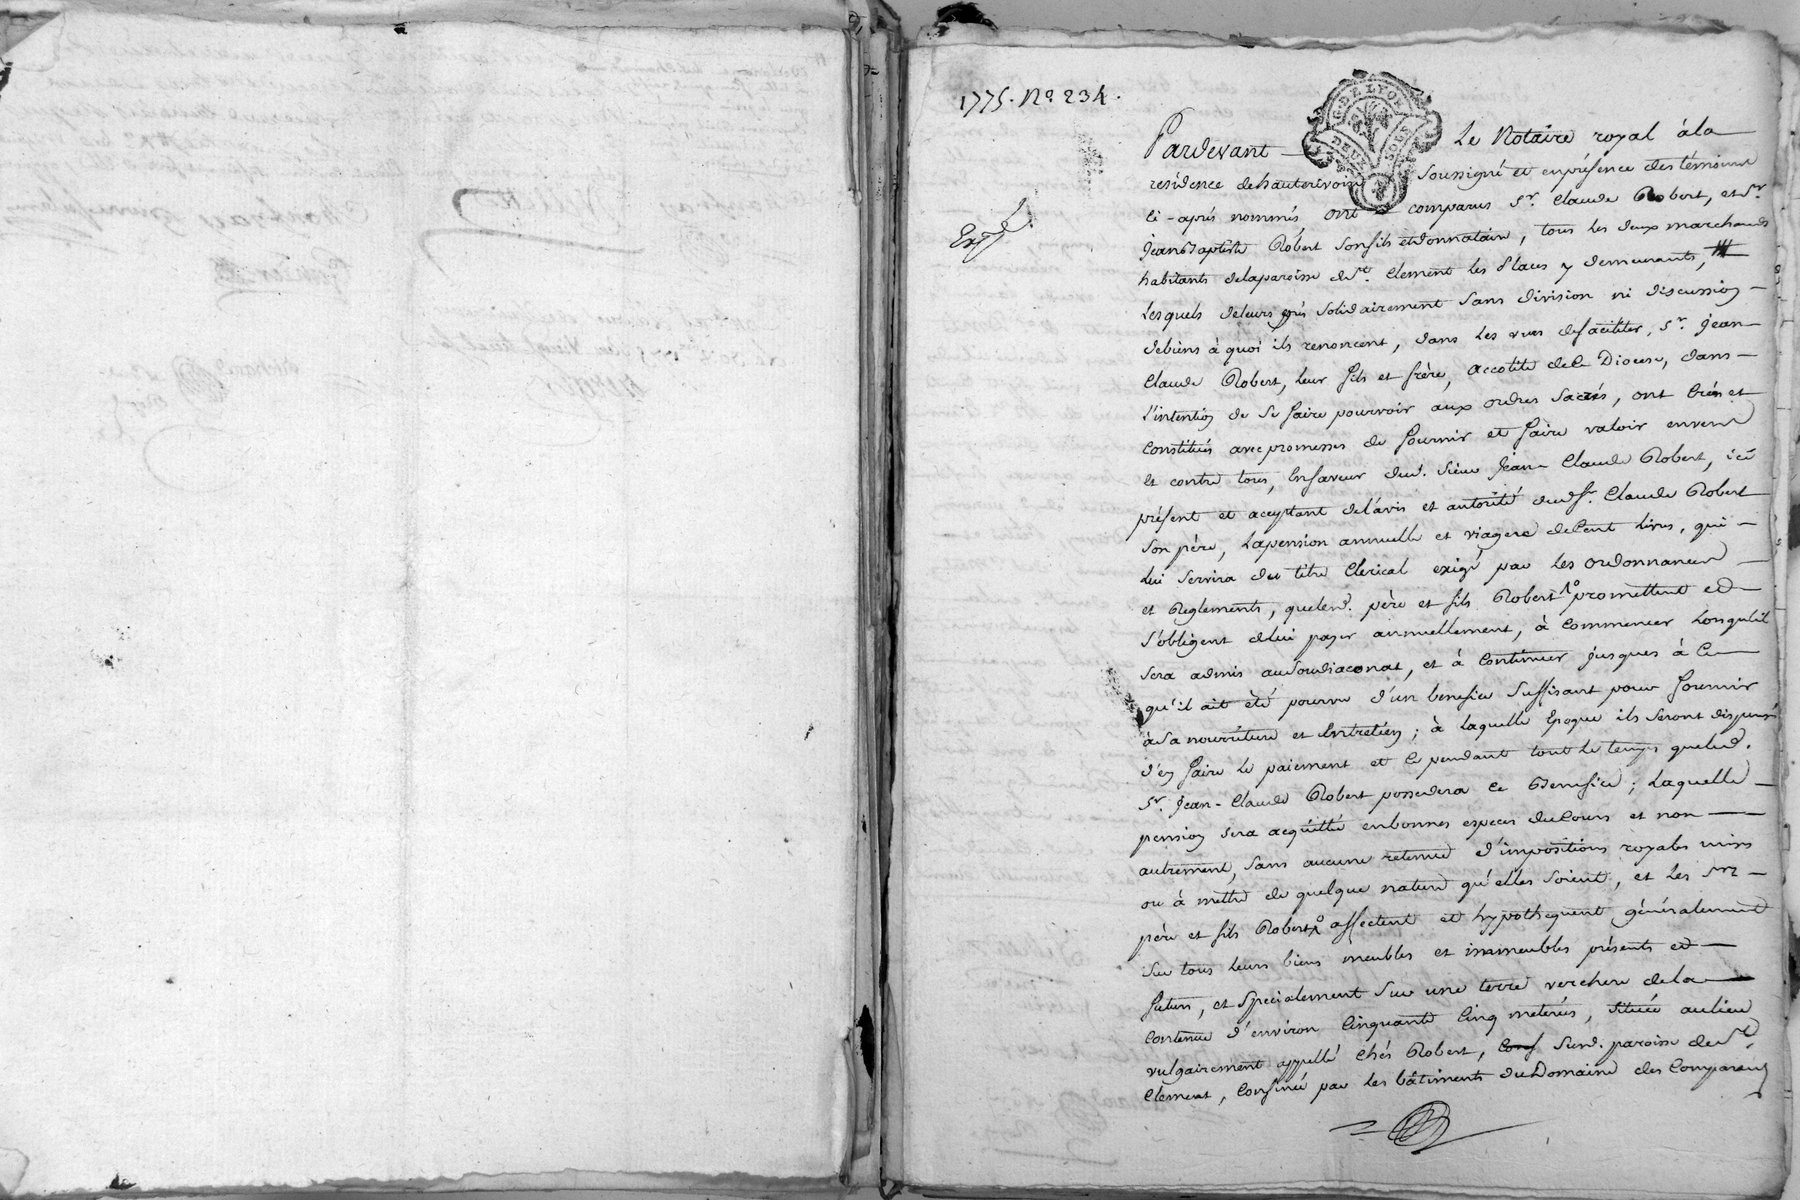 1775. No. 234.
G. DE LYON
DEUX SOLS
Pardevant Le Notaire royal à la
residence de hauterivoire soussigné et en présence des témoins
ci-aprés nommés ont comparus Sr. Claude Robert, et Sr.
Jean Baptiste Robert son fils et donnataire, tous les deux marchands
habitants de la paroisse de St. Clement les Places y demeurants,
Lesquels de leurs grés solidairement sans division ni discussion
de biens à quoi ils renoncent, dans les vues de faciliter, Sr. Jean
Claude Robert, leur fils et frère, accolite de ce Diocese, dans
l'intention de se faire pourvoir aux ordres sacrés, ont créés et
constitués avec promesses de fournir et faire valoir envers
et contre tous, en faveur dud. sieur Jean Claude Robert, ici
présent et aceptant de l'avis et autorité dud. Sr. Claude Robert
son père, la pension annuelle et viagere de Cent Livres, qui
lui servira de titre Clerical exigé par les ordonnances
et Reglements, que lesd. père et fils Robert promettent et
s'obligent de lui payer annuellement, à commencer lorsqu'il
sera admis au soudiaconat, et à continuer jusques à ce
qu'il ait été pourvu d'un benefice suffisant pour fournir
à sa nourriture et entretien; à laquelle époque ils seront dispensés
d'en faire le paiement et ce pendant tout le temps que led.
Sr. Jean-Claude Robert possedera ce Benefice; Laquelle
pension sera acquittée en bonnes especes du Cours et non
autrement, sans aucune retenue d'impositions royales mises
ou à mettre de quelque nature qu'elles soient, et les Srs
père et fils Robert affectent et hypothequent généralement
sur tous leurs biens meubles et immeubles présents et
futurs, et specialement sur une terre verchere de la
contenue d'environ Cinquante Cinq meterées, située au lieu
vulgairement appellé chés Robert, sur sud. paroisse de St.
Clement, Confinée par les bâtiments du Domaine des Comparants